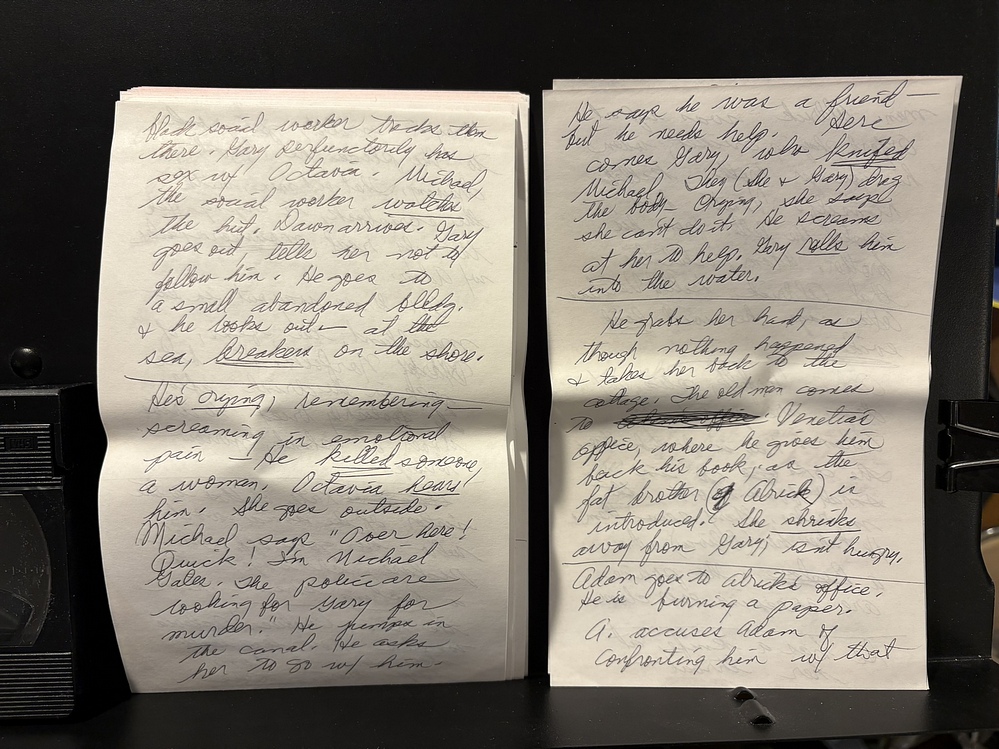 Black social worker tracks them
there. Gary perfunctorily has
sex w/ Octavia. Michael,
the social worker watches
the hut. Dawn arrives. Gary
goes out, tells her not to
follow him. He goes to
a small abandoned bldg.
& he looks out — at the
sea, breakers on the shore.
He's crying, remembering —
screaming in emotional
pain — He killed someone,
a woman. Octavia hears
him. She goes outside.
Michael says "Over here!
Quick! I'm Michael
Gales. The police are
looking for Gary for
murder." He jumps in
the canal. He asks
her to go w/ him.
He says he was a friend —
but he needs help. Here
comes Gary, who knifed
Michael. They (she & Gary) drag
the body — Crying, she says
she can't do it. He screams
at her to help. Gary rolls him
into the water.
He grabs her hand, as
though nothing happened
& takes her back to the
cottage. The old man comes
to Venetian
office, where he gives him
back his book, as the
fat brother (of Alrick) is
introduced. She shrinks
away from Gary; isn't hungry.
Adam goes to Alrick's office.
He is burning a paper.
A. accuses Adam of
confronting him w/ that